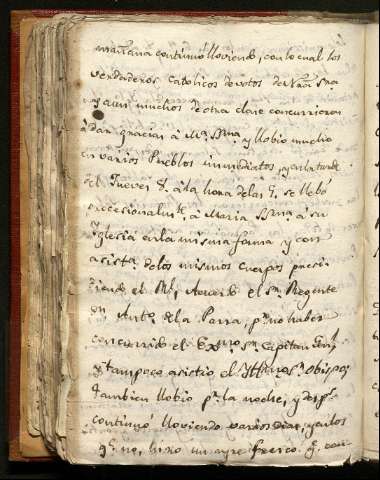 mañana continuó lloviendo, con lo cual los
verdaderos catolicos devotos de Nrã Sra
y aun muchos de otra clase concurrieron
à dar gracias à Mª Ssma. y llobio mucho
en varios Pueblos inmediatos, y en la tarde
del Jueves 8. a la hora de las se llebó
procesionalmte. à Maria Ssma. a su
Yglesia en la misma forma y con
asista. de los mismos cuerpos presi
diendo el Rl. Acuerdo el Sr. Regente
Dn. Anto. de la Parra, pr. no haber
concurrido el Exmo. Sr. Capitan Genl.
y tampoco asistio el Yllmo. Sr. Obispo;
tambien llobio pr. la noche, y desps.
continuó lloviendo varios dias, y en los
qe. no, hizo un ayre fresco qe. con-